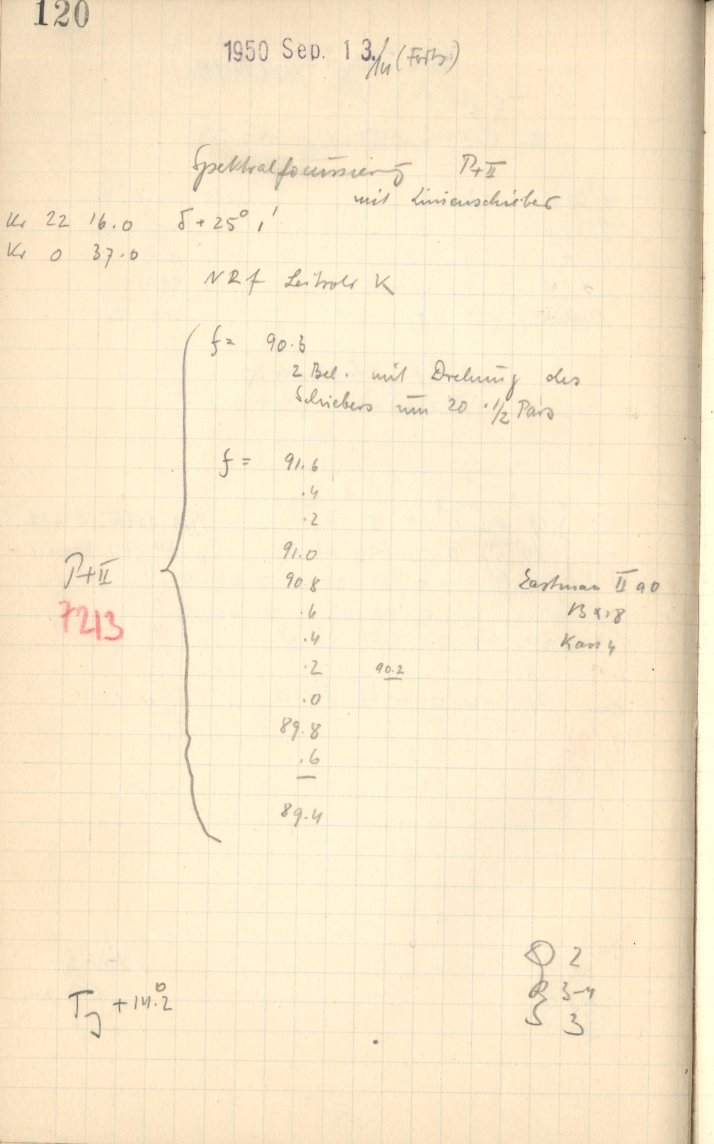 120
1950 Sep. 13./14 (Forts.)
Spektralfocussierung P+II
mit Linienschieber
Kr 22 16.0 δ + 25° 1'
Kr 0 37.0
f = 90.3
2 Bel. mit Drehung des
Schiebers um 20 · 1/2 Pars
f = 91.6
.4
.2
91.0
90.8
.6
.4
.2 90.2
.0
89.8
.6
89.4
P+II
7213
Eastman II a O
Kass 4
T +14°.2
2
3-4
S 3